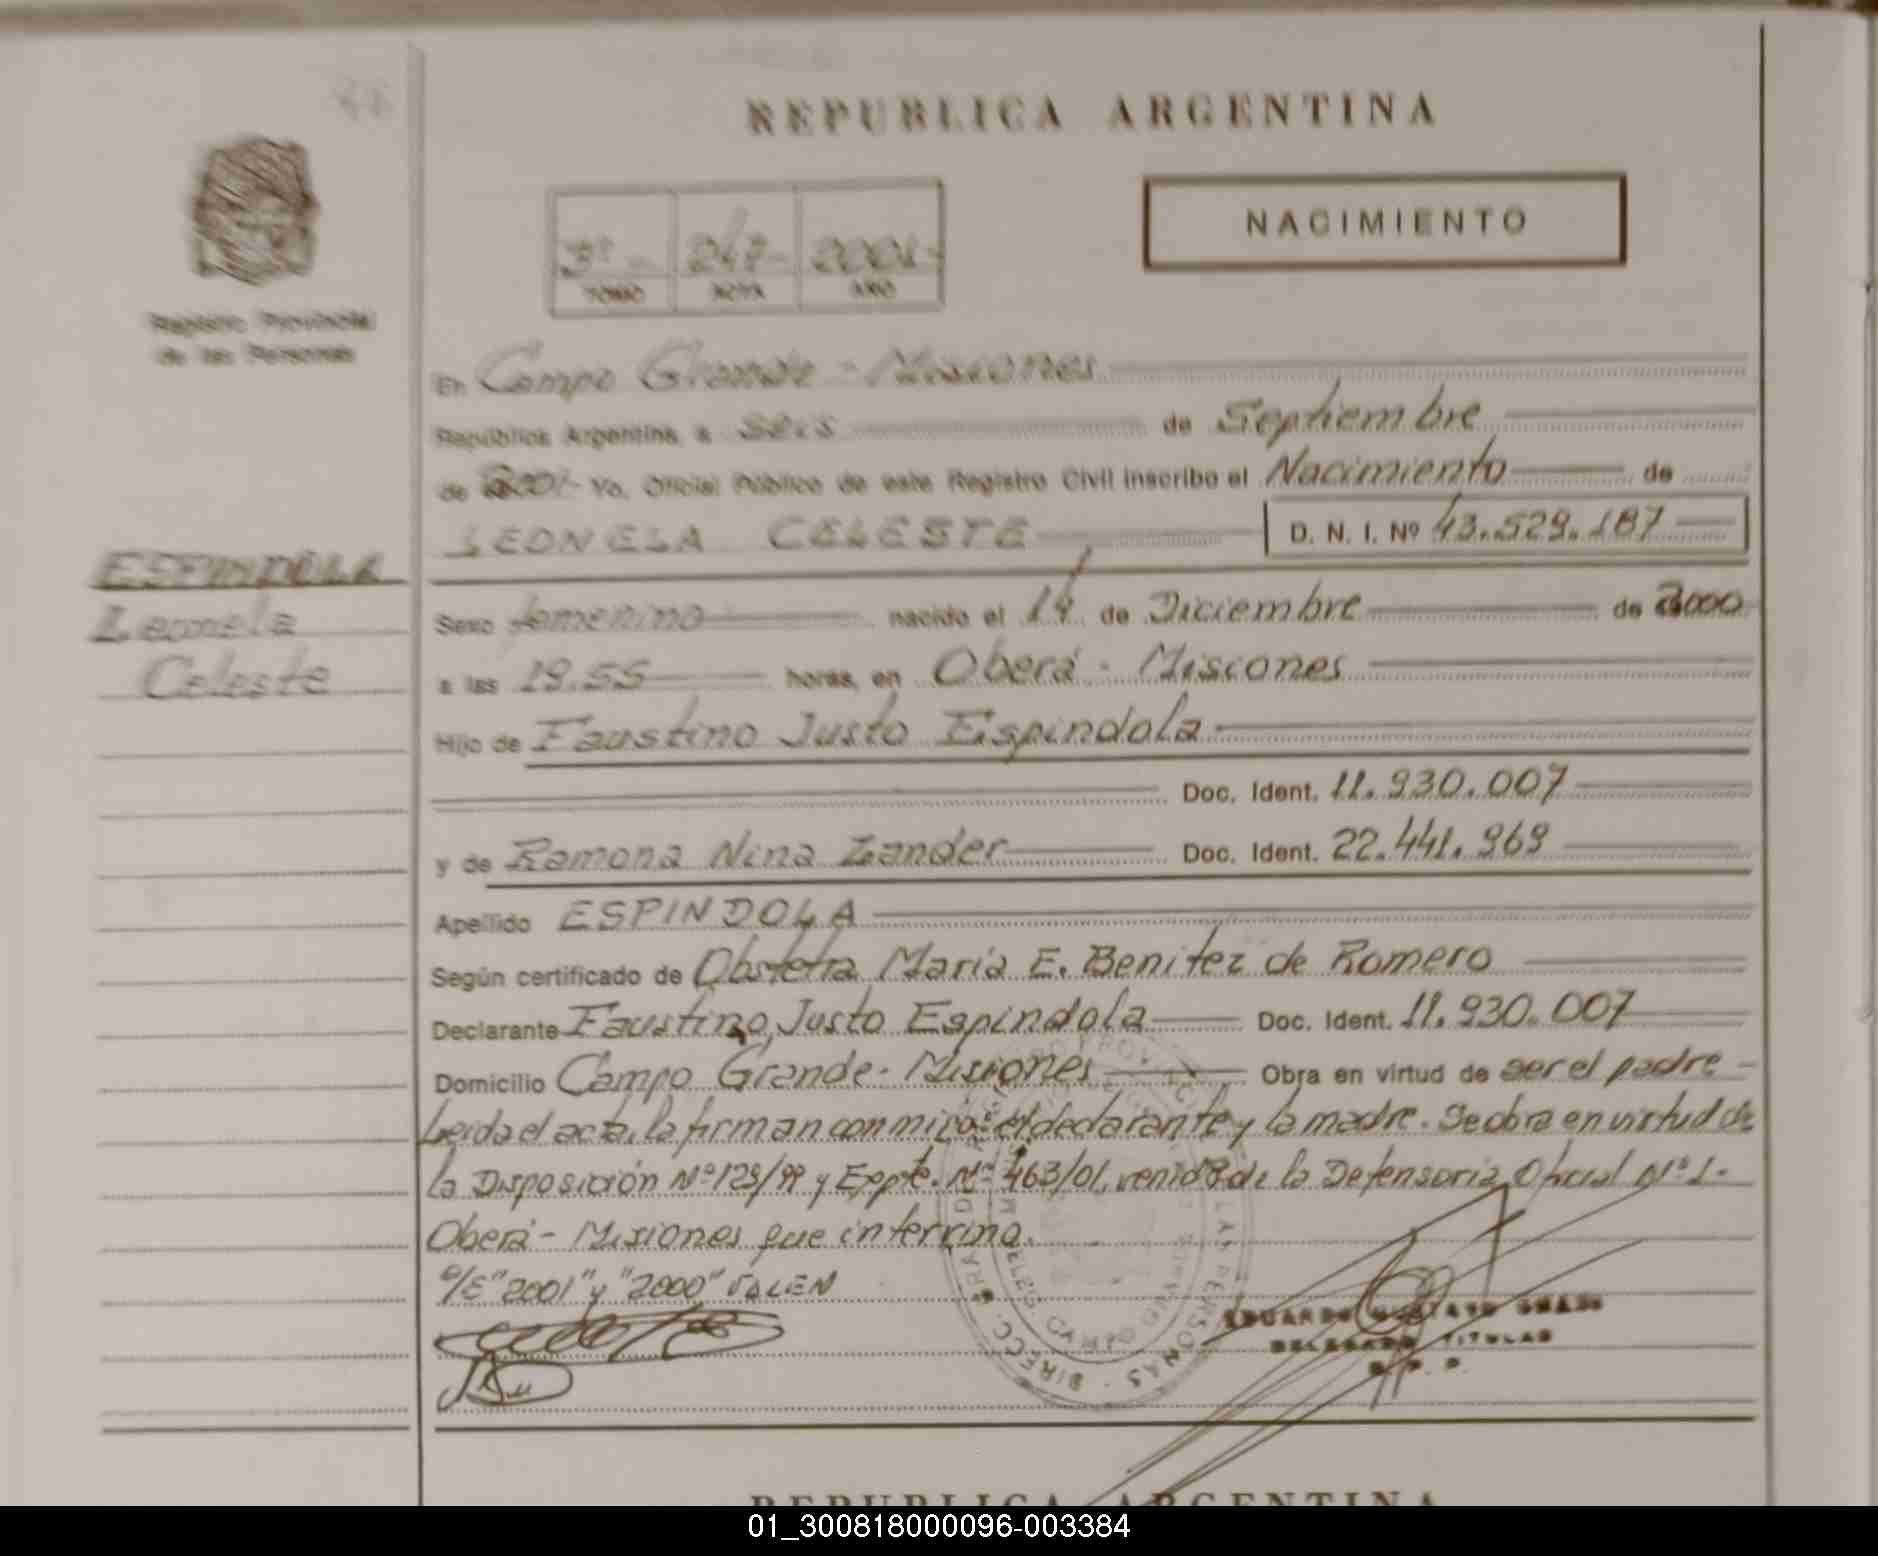 REPUBLICA ARGENTINA
NACIMIENTO
3º - 247 - 2001 -
TOMO ACTA AÑO
Registro Provincial
de las Personas
En Campo Grande - Misiones
República Argentina, a seis de Septiembre
de 2001 - Yo, Oficial Público de este Registro Civil inscribo el Nacimiento de
LEONELA CELESTE D. N. I. Nº 43.529.187
ESPINDOLA
Leonela
Celeste
Sexo femenino nacido el 14 de Diciembre de 2000
a las 19.55 horas, en Oberá - Misiones
Hijo de Faustino Justo Espindola
Doc. Ident. 11.930.007
y de Ramona Nina Zander Doc. Ident. 22.441.969
Apellido ESPINDOLA
Según certificado de Obstetra María E. Benitez de Romero
Declarante Faustino Justo Espindola Doc. Ident. 11.930.007
Domicilio Campo Grande - Misiones Obra en virtud de ser el padre -
Leida el acta, la firman conmigo el declarante y la madre. Se obra en virtud de
la Disposición Nº 129/99 y Expte. Nº 463/01, venido de la Defensoria Oficial Nº 1 -
Oberá - Misiones que intervino.
S/E "2001" y "2000" VALEN
EDUARDO
DELEGADO TITULAR
R. P. P.
REPUBLICA ARGENTINA
01_300818000096-003384